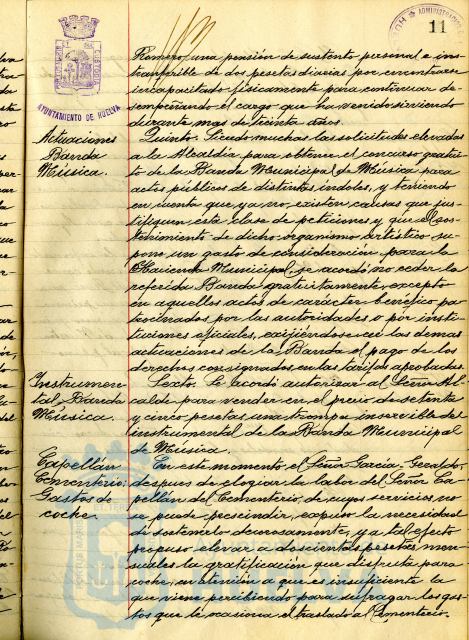 11
AYUNTAMIENTO DE HUELVA
Romero, una pensión de sustento personal e ins-
tranferible de dos pesetas diarias por encontrarse
incapacitado físicamente para continuar de-
sempeñando el cargo que ha venido sirviendo
durante mas de treinta años.
Actuaciones
Banda
Música.
Quinto. Siendo muchas las solicitudes elevadas
a la Alcaldía para obtener el concurso gratui-
to de la Banda Municipal de Música para
actos públicos de distintas índoles, y teniendo
en cuenta que ya no existen causas que jus-
tifiquen esta clase de peticiones y que el sos-
tenimiento de dicho organismo artístico su-
pone un gasto de consideración para la
Hacienda Municipal, se acordó no ceder la
referida Banda gratuitamente, excepto
en aquellos actos de carácter benéfico pa-
trocinados por las autoridades o por insti-
tuciones oficiales, exijiéndose en las demas
actuaciones de la Banda el pago de los
derechos consignados en las tarifas aprobadas.
Instrumen-
tal Banda
Música
Sexto. Se acordó autorizar al Señor Al-
calde para vender en el precio de setenta
y cinco pesetas una trompa inservible del
instrumental de la Banda Municipal
de Musica.
Capellán
Cementerio.
Gastos de
coche.
En este momento el Señor García Geraldo,
despues de elogiar la labor del Señor Ca-
pellán del Cementerio, de cuyos servicios no
se puede prescindir, expuso la necesidad
de sostenerlo decorosamente, y a tal efecto
propuso elevar a doscientas pesetas men-
suales la gratificación que disfruta para
coche, en atención a que es insuficiente la
que viene percibiendo para sufragar los gas-
tos que le ocasiona el traslado al Cementerio.